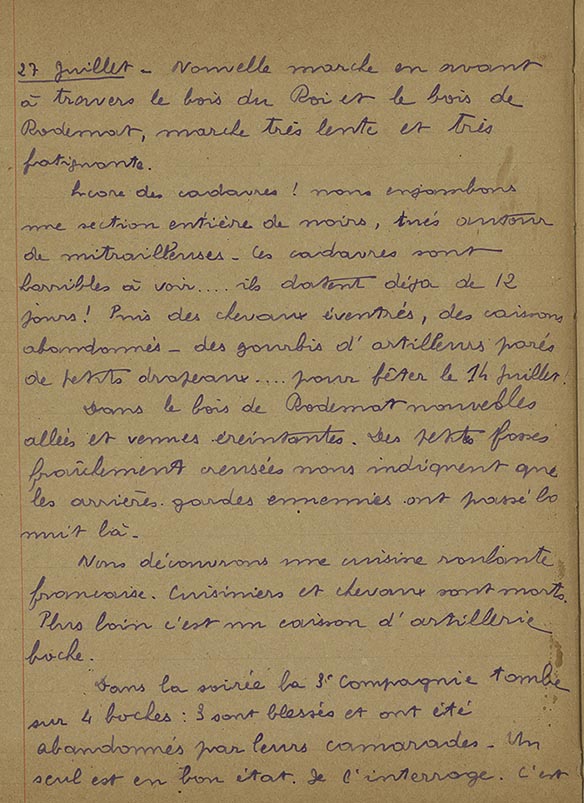 27 Juillet - Nouvelle marche en avant
à travers le bois du Roi et le bois de
Rodemat, marche très lente et très
fatignante.
Encore des cadavres ! nous enjambons
une section entière de noirs, tués autour
de mitrailleuses - Ces cadavres sont
horribles à voir.... ils datent déja de 12
jours ! Puis des chevaux éventrés, des caissons
abandonnés - des gourbis d'artilleurs parés
de petits drapeaux.... pour fêter le 14 Juillet !
Dans le bois de Rodemat nouvelles
allées et venues éreintantes. Des petits fosses
fraîchement creusées nous indiquent que
les arrières-gardes ennemies ont passé la
nuit là -
Nous découvrons une cuisine roulante
française. Cuisiniers et chevaux sont morts.
Plus loin c'est un caisson d'artillerie
boche.
Dans la soirée la 3e Compagnie tombe
sur 4 boches : 3 sont blessés et ont été
abandonnés par leurs camarades - Un
seul est en bon état. Je l'interroge. C'est